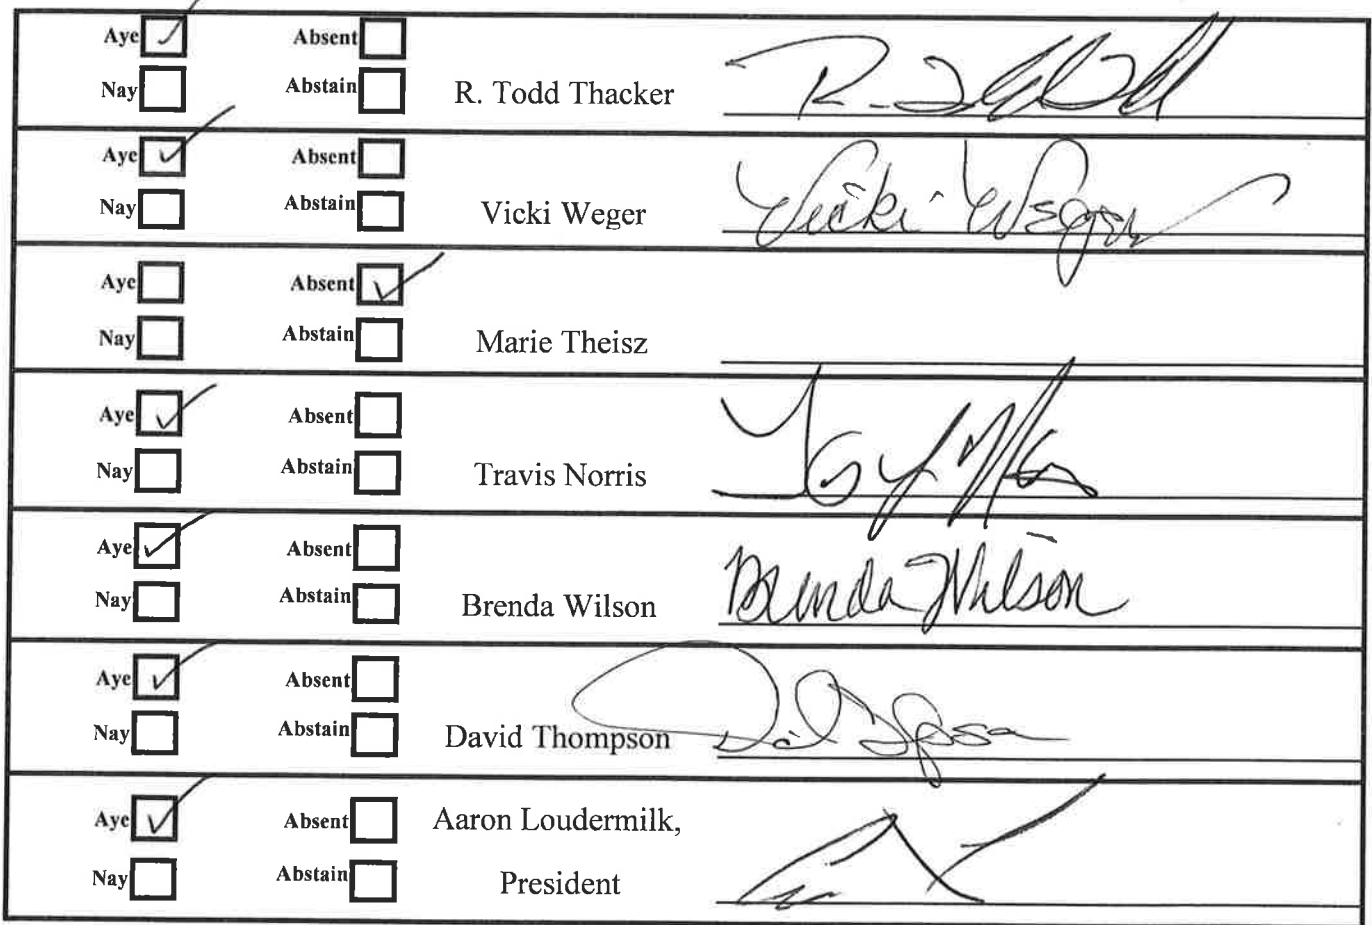 Aye Absent
Nay Abstain R. Todd Thacker
Aye Absent
Nay Abstain Vicki Weger Vicki Weger
Aye Absent
Nay Abstain Marie Theisz
Aye Absent
Nay Abstain Travis Norris
Aye Absent
Nay Abstain Brenda Wilson Brenda Wilson
Aye Absent
Nay Abstain David Thompson
Aye Absent Aaron Loudermilk,
Nay Abstain President